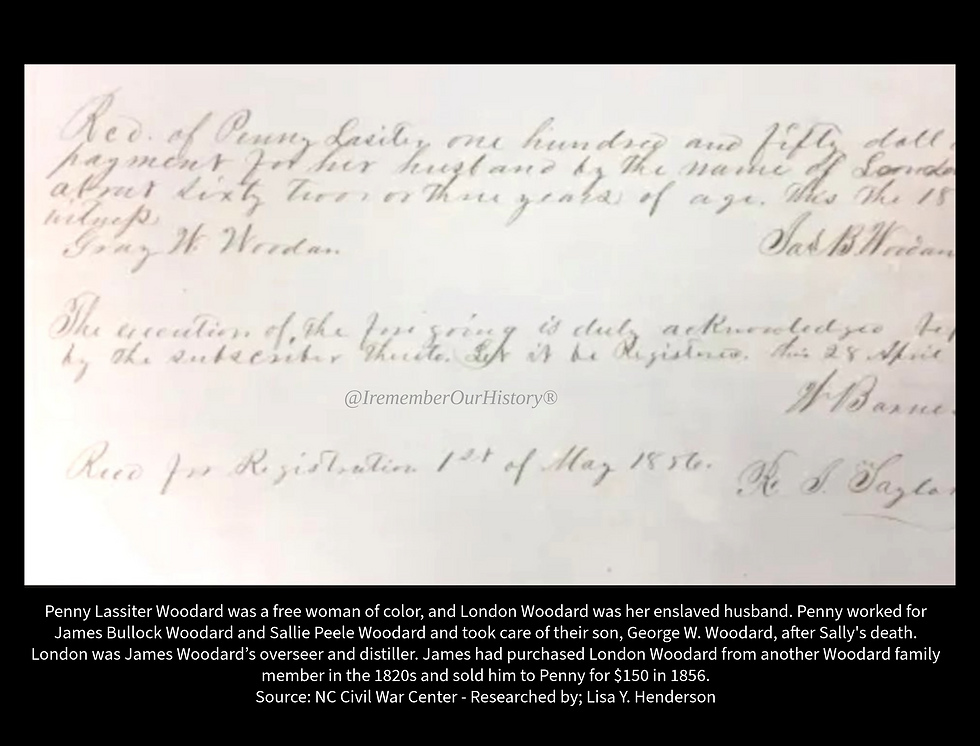 Recd. of Penny Lasiter one hundred and fifty doll
payment for her husband by the name of London
about sixty two or three years of age. This the 18
witness
Gray W Woodan
Jas B Woodan
The execution of the fore going is duly acknowledged bef
by the subscriber thereto. Let it be Registered. This 28 April
W Barne
Recd for Registration 1st of May 1856.
@IrememberOurHistory®
Penny Lassiter Woodard was a free woman of color, and London Woodard was her enslaved husband. Penny worked for
James Bullock Woodard and Sallie Peele Woodard and took care of their son, George W. Woodard, after Sally's death.
London was James Woodard’s overseer and distiller. James had purchased London Woodard from another Woodard family
member in the 1820s and sold him to Penny for $150 in 1856.
Source: NC Civil War Center - Researched by; Lisa Y. Henderson